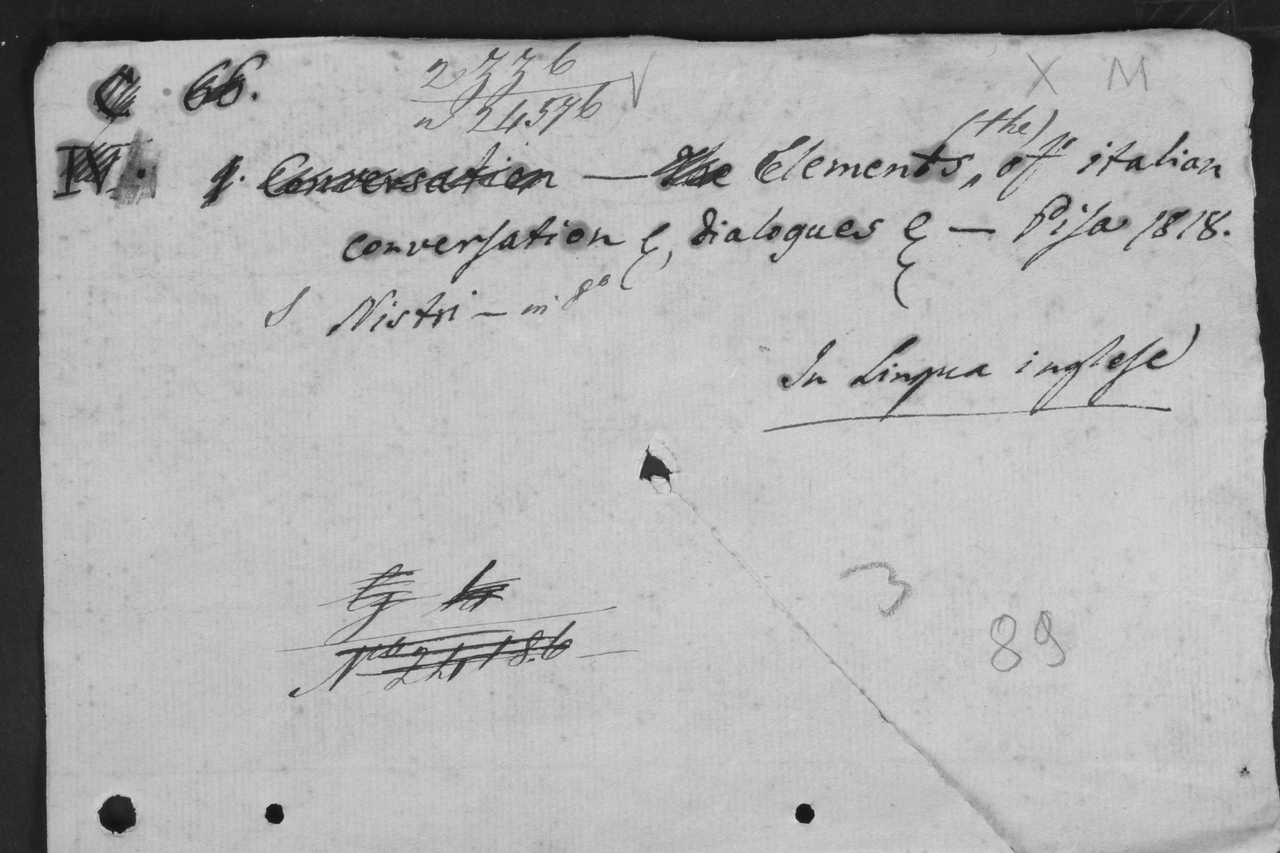 66.
X M
24576
Conversation — The Elements, (the) of italian
conversation &, dialogues & — Pisa 1818.
Nistri — in 8º
In Lingua inglese
3
89